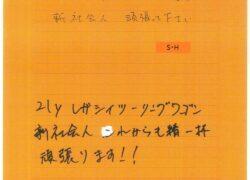 新社会人 頑張って下さい
S・H
21y レガシィツーリングワゴン
新社会人 これからも精一杯
頑張ります!!